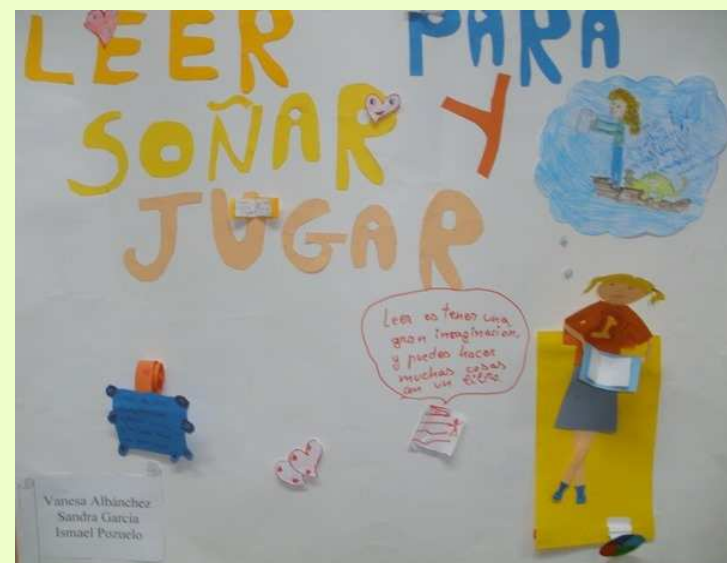 LEER PARA
SOÑAR Y
JUGAR
Leer es tener una
gran imaginación,
y puedes hacer
muchas cosas
con un libro.
Vanesa Albánchez
Sandra García
Ismael Pozuelo